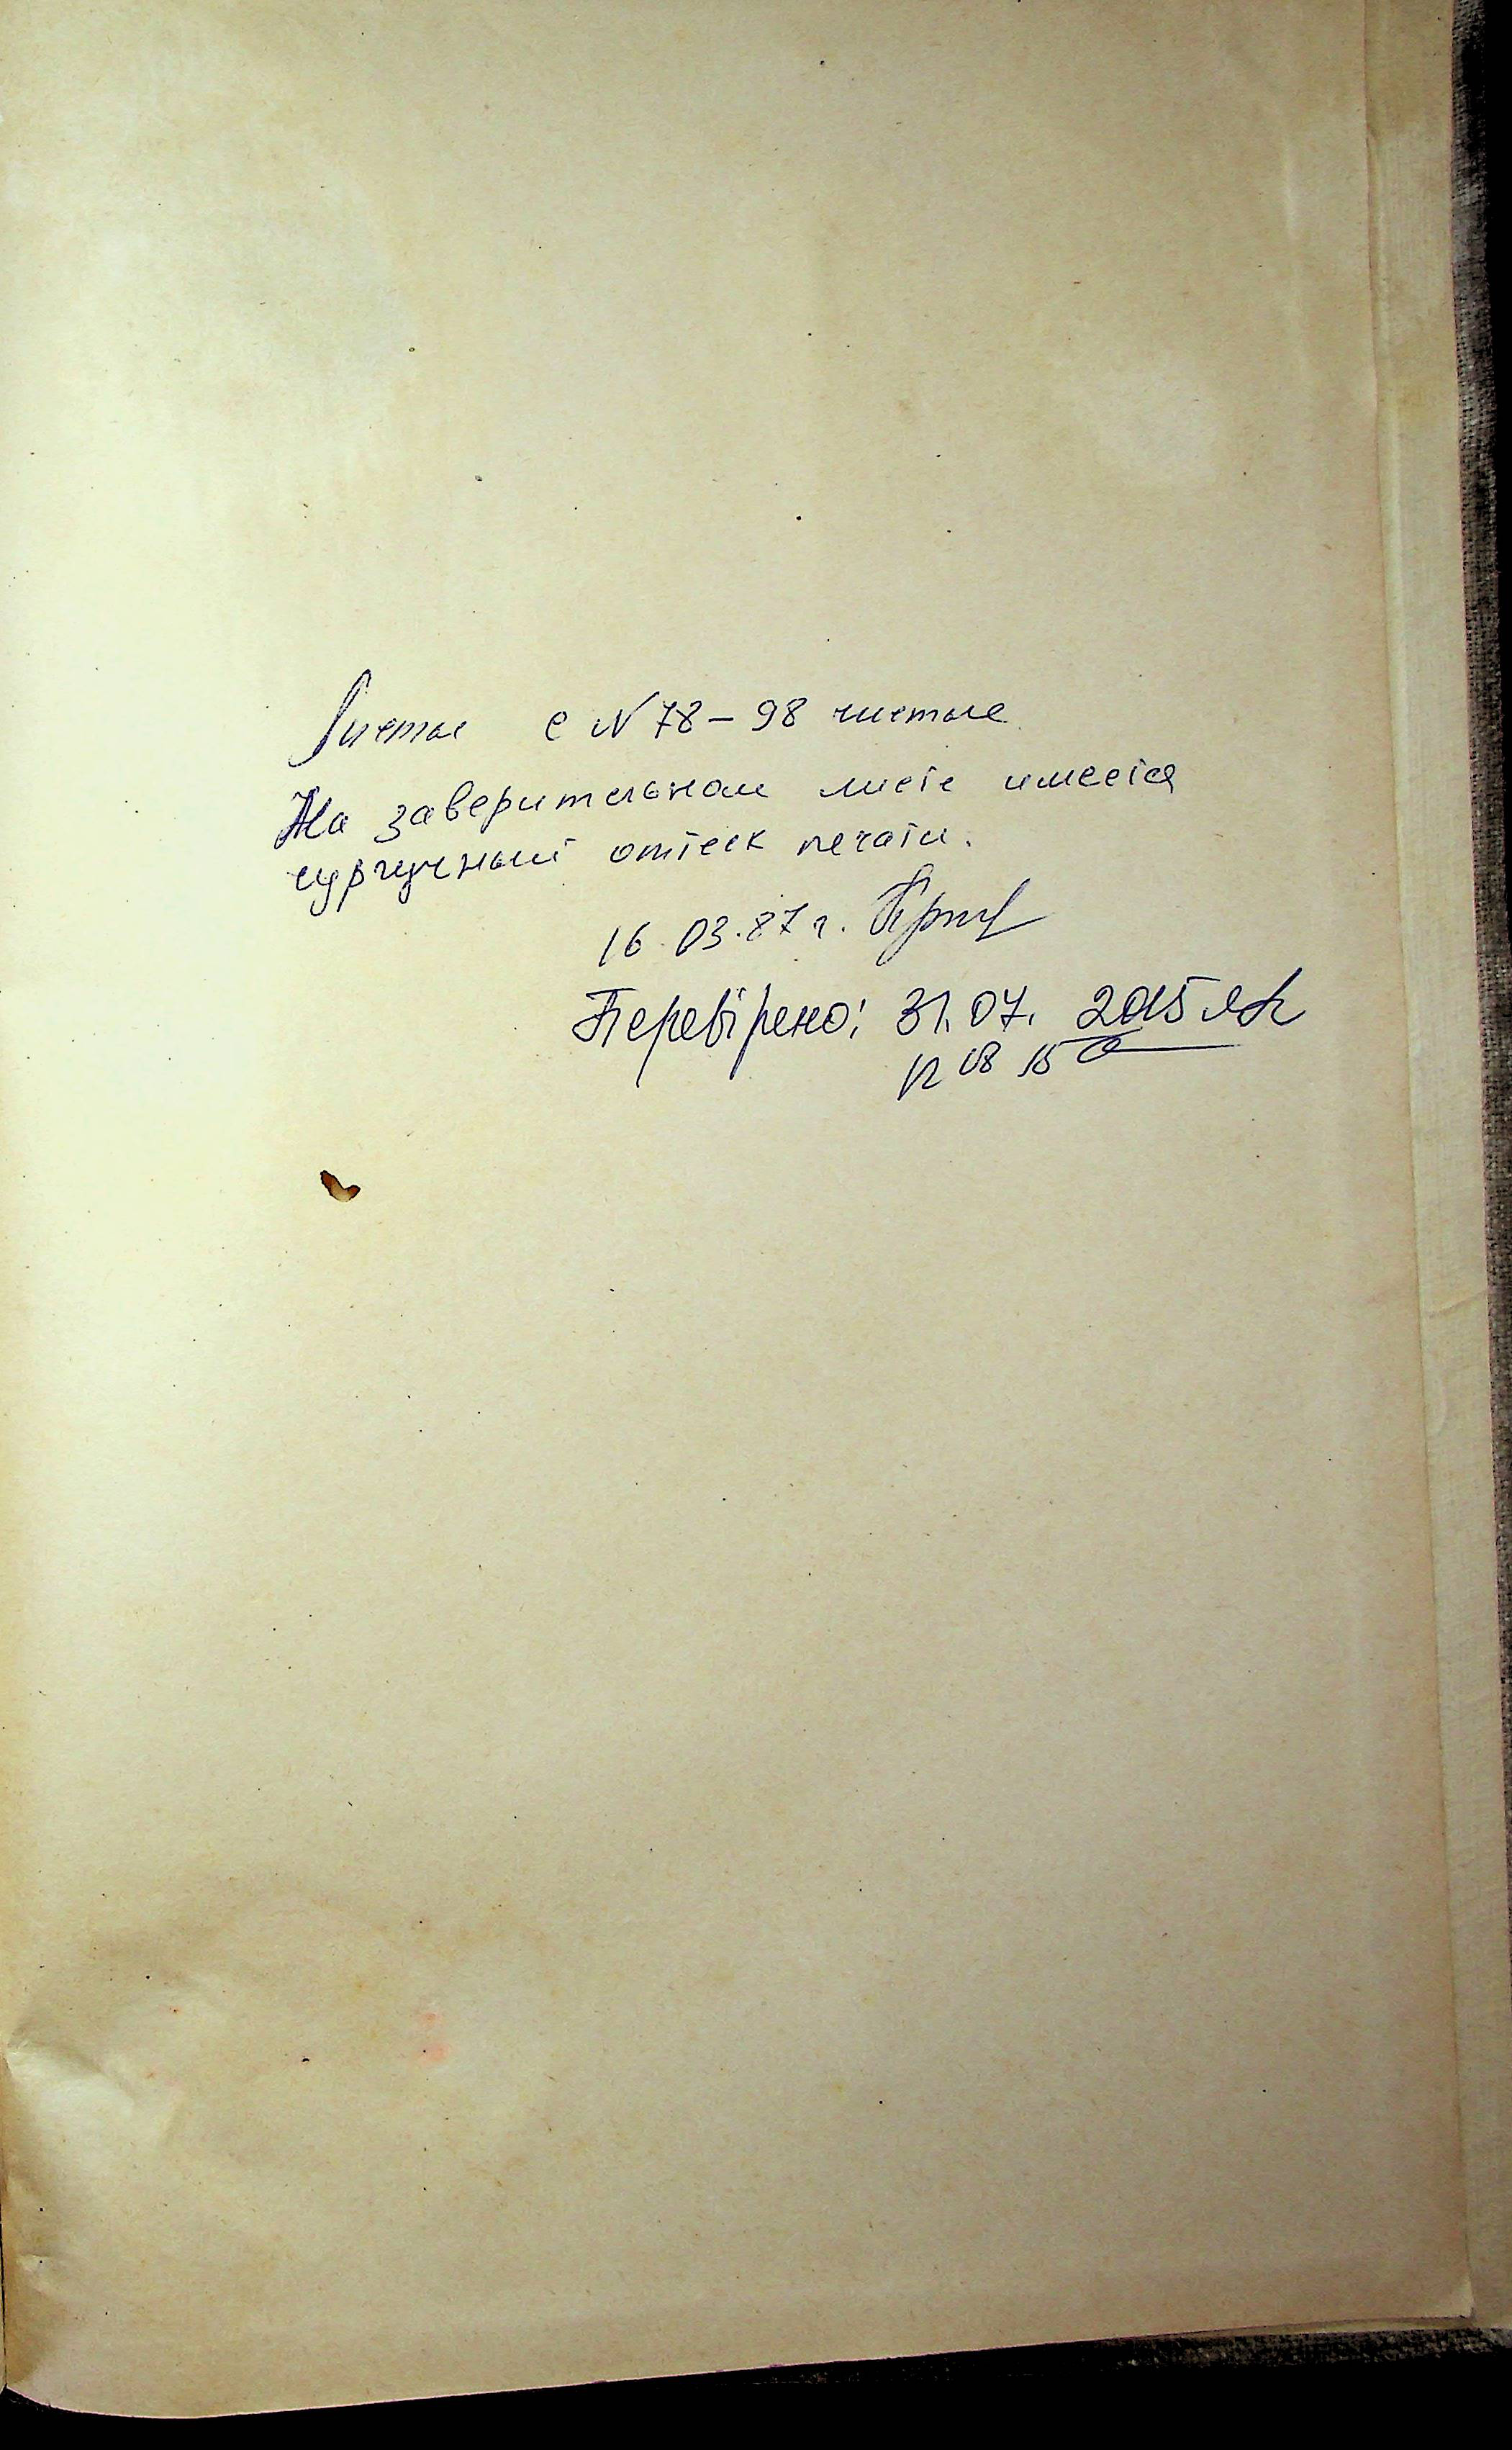 Листы с N 78-98 чистые
На заверительном листе имеется
сургучный оттиск печати.
16.03.87 г.
Перевірено: 31.07. 2015
12 08 15